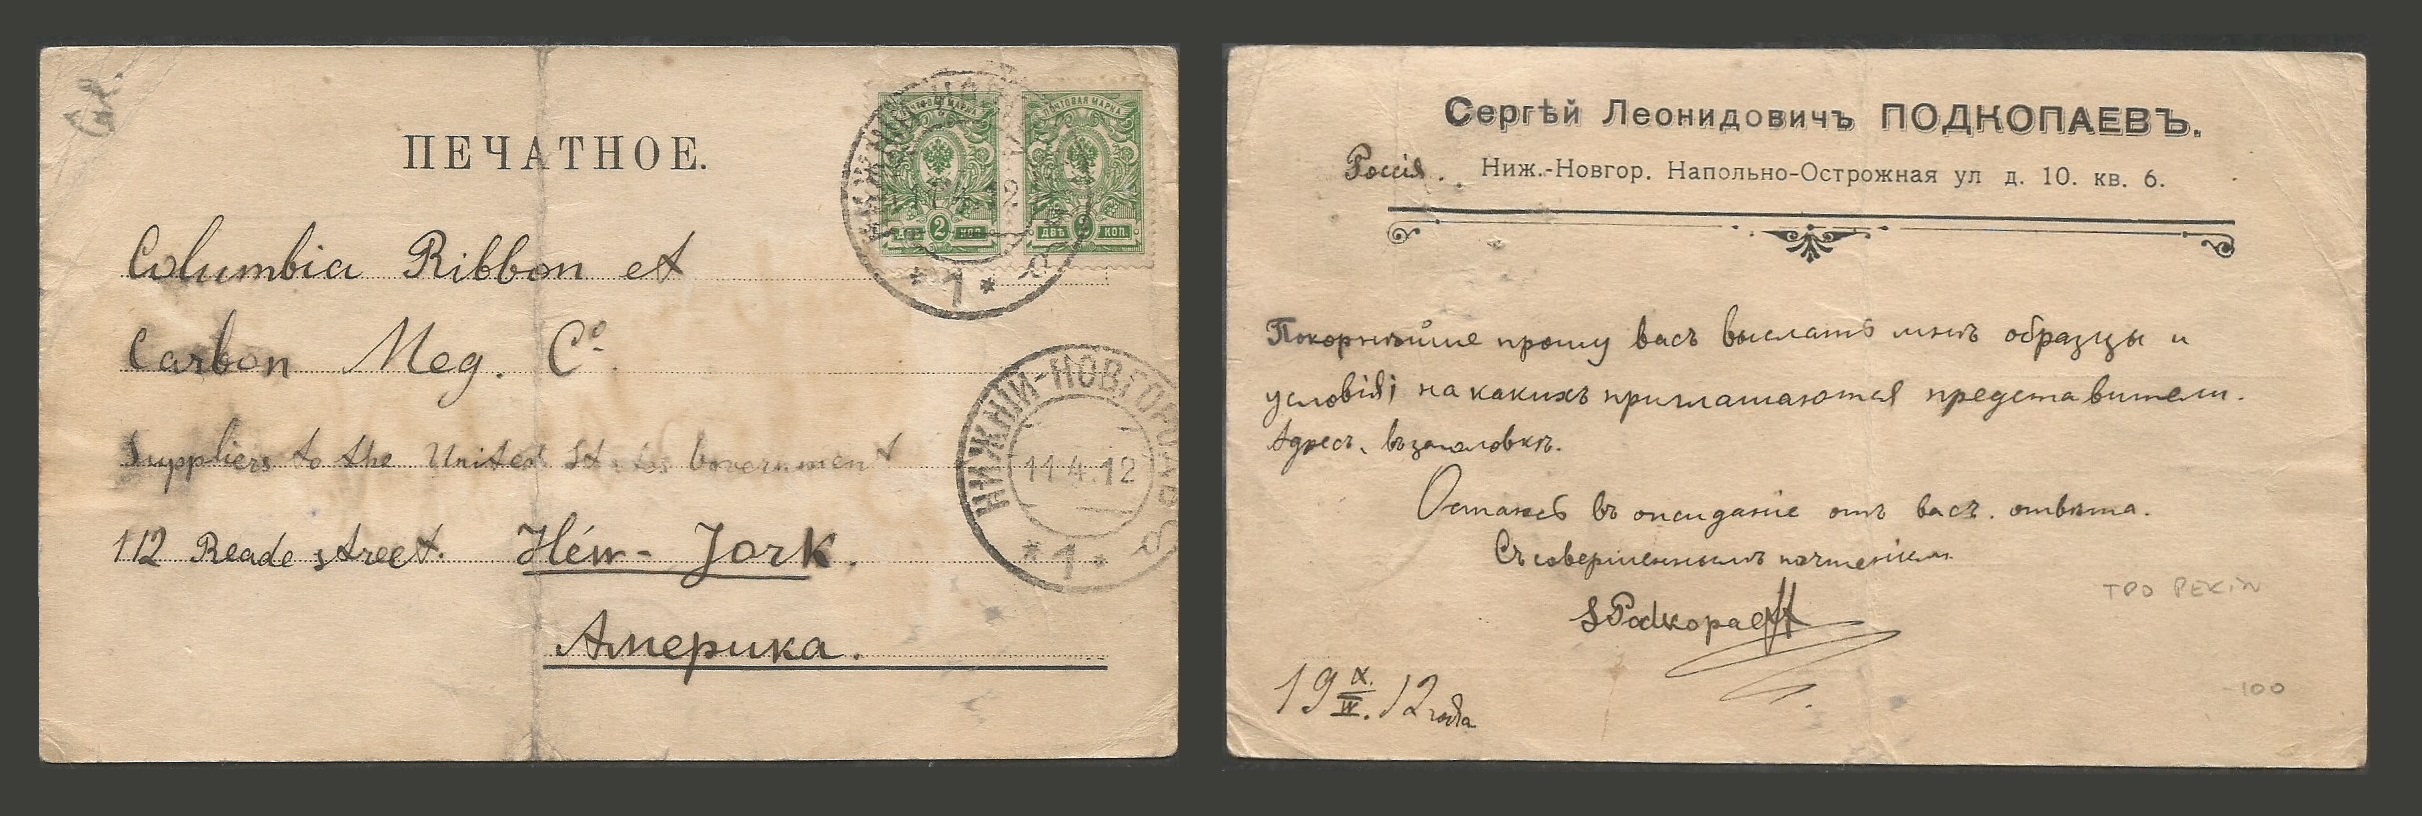 ПЕЧАТНОЕ.
ПОЧТОВАЯ МАРКА
ПОЧТОВАЯ МАРКА
2 КОП.
ДВѢ КОП.
Columbia Ribbon et
Carbon Meg. Cº.
Suppliers to the United States Government
112 Reade street. Héw-Jork.
Америка.
НИЖНІЙ-НОВГОРОДЪ
11.4.12
*1*
*1*
Сергѣй Леонидовичъ ПОДКОПАЕВЪ.
Россія. Ниж.-Новгор. Напольно-Острожная ул д. 10. кв. 6.
Покорнѣйше прошу васъ выслать мнѣ образцы и
условія; на какихъ приглашаются представители.
Адресъ. въ заголовкѣ.
Остаюсь въ ожиданіе отъ васъ. отвѣта.
Съ совершеннымъ почтеніем
SPodkopaeff
TPO PEKIN
19 X./IV. 12 года
-100